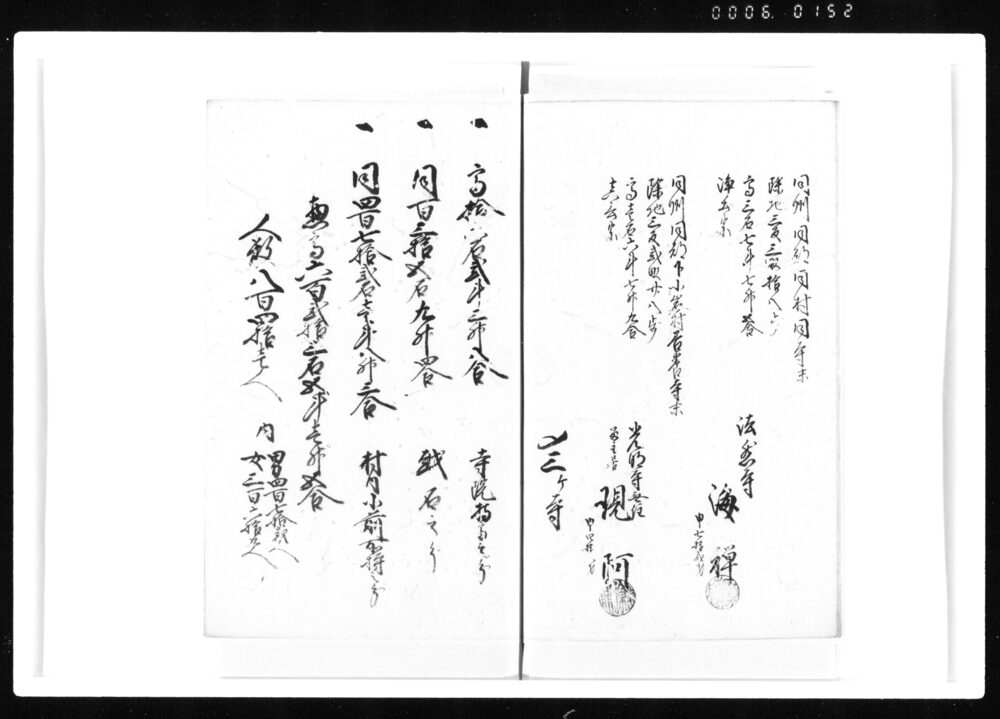 0006. 0152
同州同郡同村同寺末
除地三反三畝拾八歩
高三石七斗七升五合
浄土宗
法然寺
海禅
申七拾弐才
同州同郡下小鳥村居養寺末
除地三反弐畝廿八歩
高壱石六斗七升九合
真言宗
光明寺無住
留主居
現阿
申四拾才
〆三ケ寺
一 高拾八石弐斗三升八合 寺院持高之分
一 同百三拾五石九升四合 越石之分
一 同四百七拾弐石壱斗八升三合 村内小前所持之分
惣高六百弐拾三石五斗壱升五合
人数八百四拾壱人
内
男四百七拾弐人
女三百六拾九人